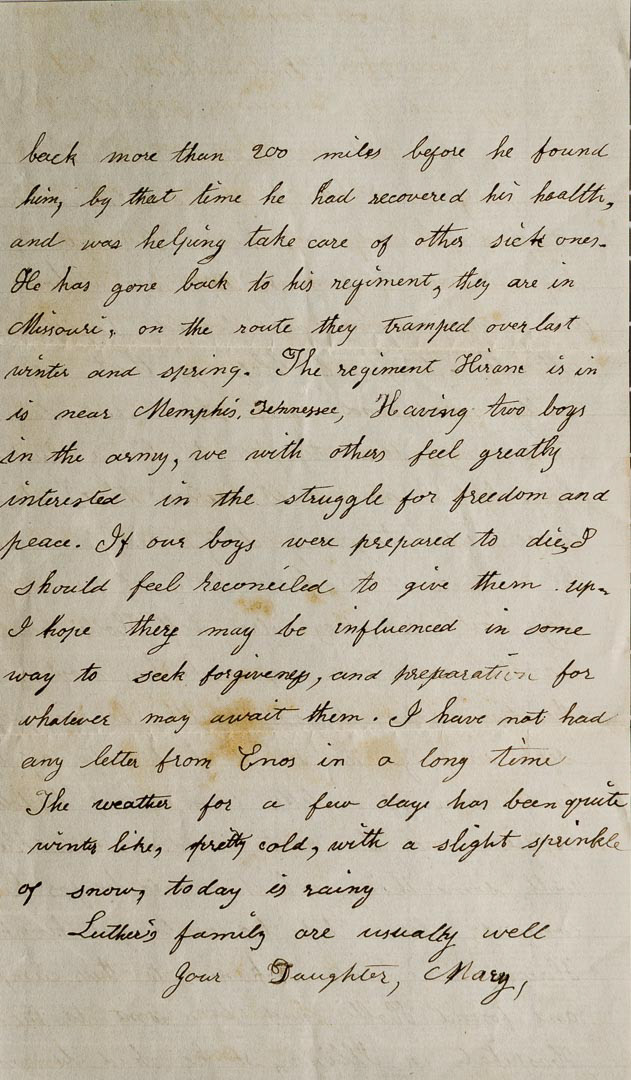 back more than 200 miles before he found
him, by that time he had recovered his health,
and was helping take care of other sick ones.
He has gone back to his regiment, they are in
Missouri, on the route they tramped over last
winter and spring. The regiment Hiram is in
is near Memphis, Tennessee, Having two boys
in the army, we with others feel greatly
interested in the struggle for freedom and
peace. If our boys were prepared to die, I
should feel reconciled to give them up.
I hope they may be influenced in some
way to seek forgiveness, and preparation for
whatever may await them. I have not had
any letter from Enos in a long time
The weather for a few days has been quite
winter like, pretty cold, with a slight sprinkle
of snow, today is rainy
Luther's family are usually well
Your Daughter, Mary,